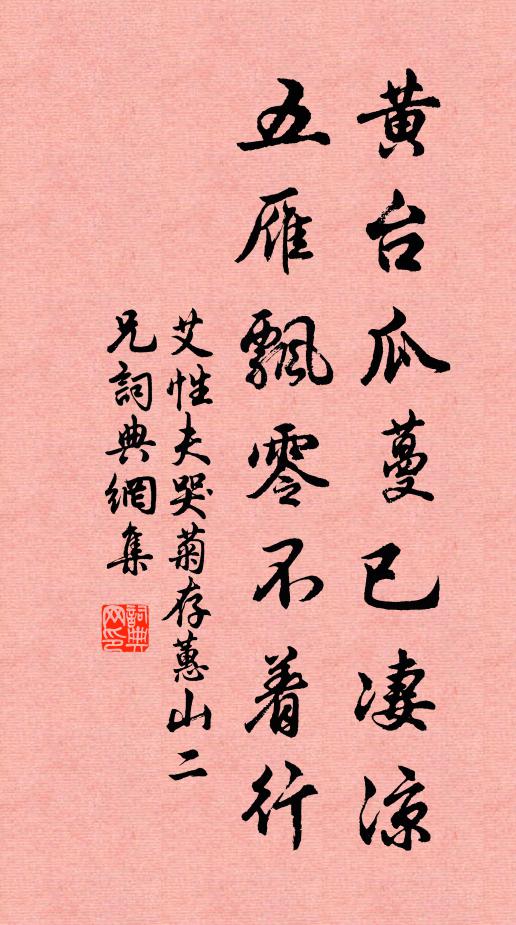 黄台瓜蔓已凄凉
五雁飄零不着行
艾性夫哭菊存蕙山二
兄詞典網集
詞典
网印